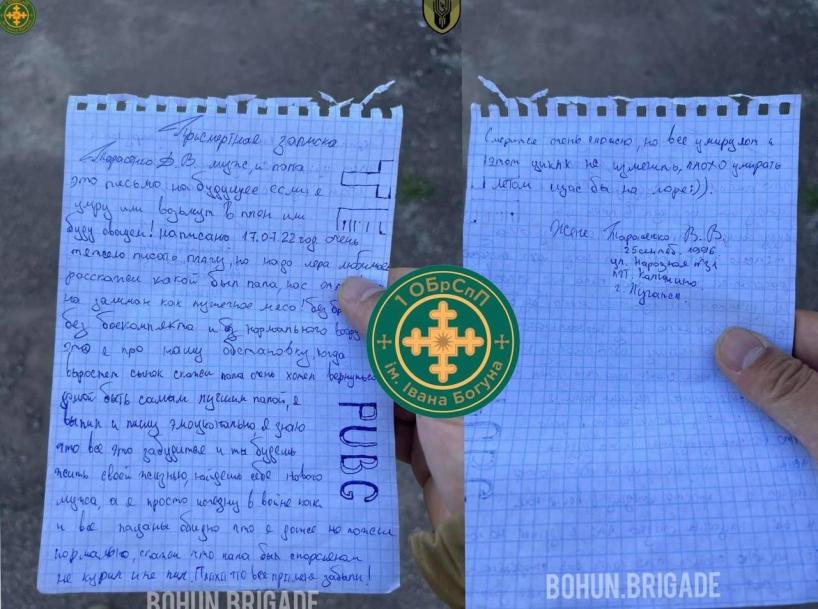 Присмертная записка
Тарасенко В. В. муж, и папа
это письмо на будущее если я
умру или возьмут в плен или
буду овощем! написано 17.07.22 год очень
тяжело писать плачу, но надо лера любимая
расскажи какой был папа, нас
на заминок как пушечное мясо! без
без боекомплекта и без нормального
это я про нашу обстановку, когда
вырастет сынок скажи папа очень хотел вернуться
домой быть самым лучшим папой, я
выпил и пишу эмоционально, я знаю
что все это забудится и ты будешь
жить своей жизнью, найдешь себе нового
мужа, а я просто исчезну в войне как
и все пацаны обидно что я даже не пожил
нормально, скажи что папа был спорсменом
не курил и не пил. Плохо что все про меня забыли!
PUBG
Смерться очень опасно, но все умирули и
этот цикл не изменить, плохо умирать
летом щас бы на море:)).
Жене Тарасенко В. В.
25 1996
ул. Народная
г. Луганск
1 ОБрСпП
ім. Івана Богуна
BOHUN.BRIGADE
BOHUN.BRIGADE